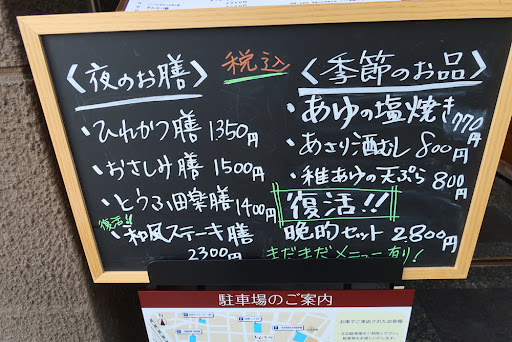 〈夜のお膳〉
税込
・ひれかつ膳 1350円
・おさしみ膳 1500円
・とうふ田楽膳 1400円
復活!!
・和風ステーキ膳
2300円
〈季節のお品〉
・あゆの塩焼き 770円
・あさり酒むし 800円
・稚あゆの天ぷら 800円
復活!!
晩酌セット 2800円
まだまだメニュー有り!
駐車場のご案内
お車でご来店されたお客様